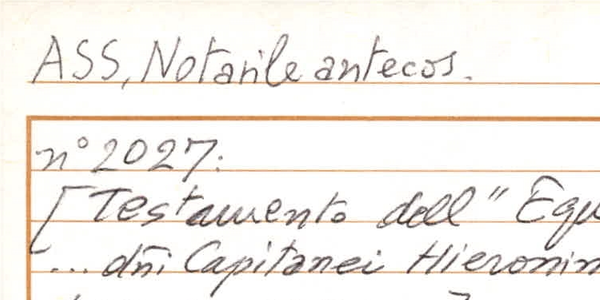 ASS, Notarile antecos.
n° 2027:
[Testamento dell'" Equ
... dñi Capitanei Hieronim